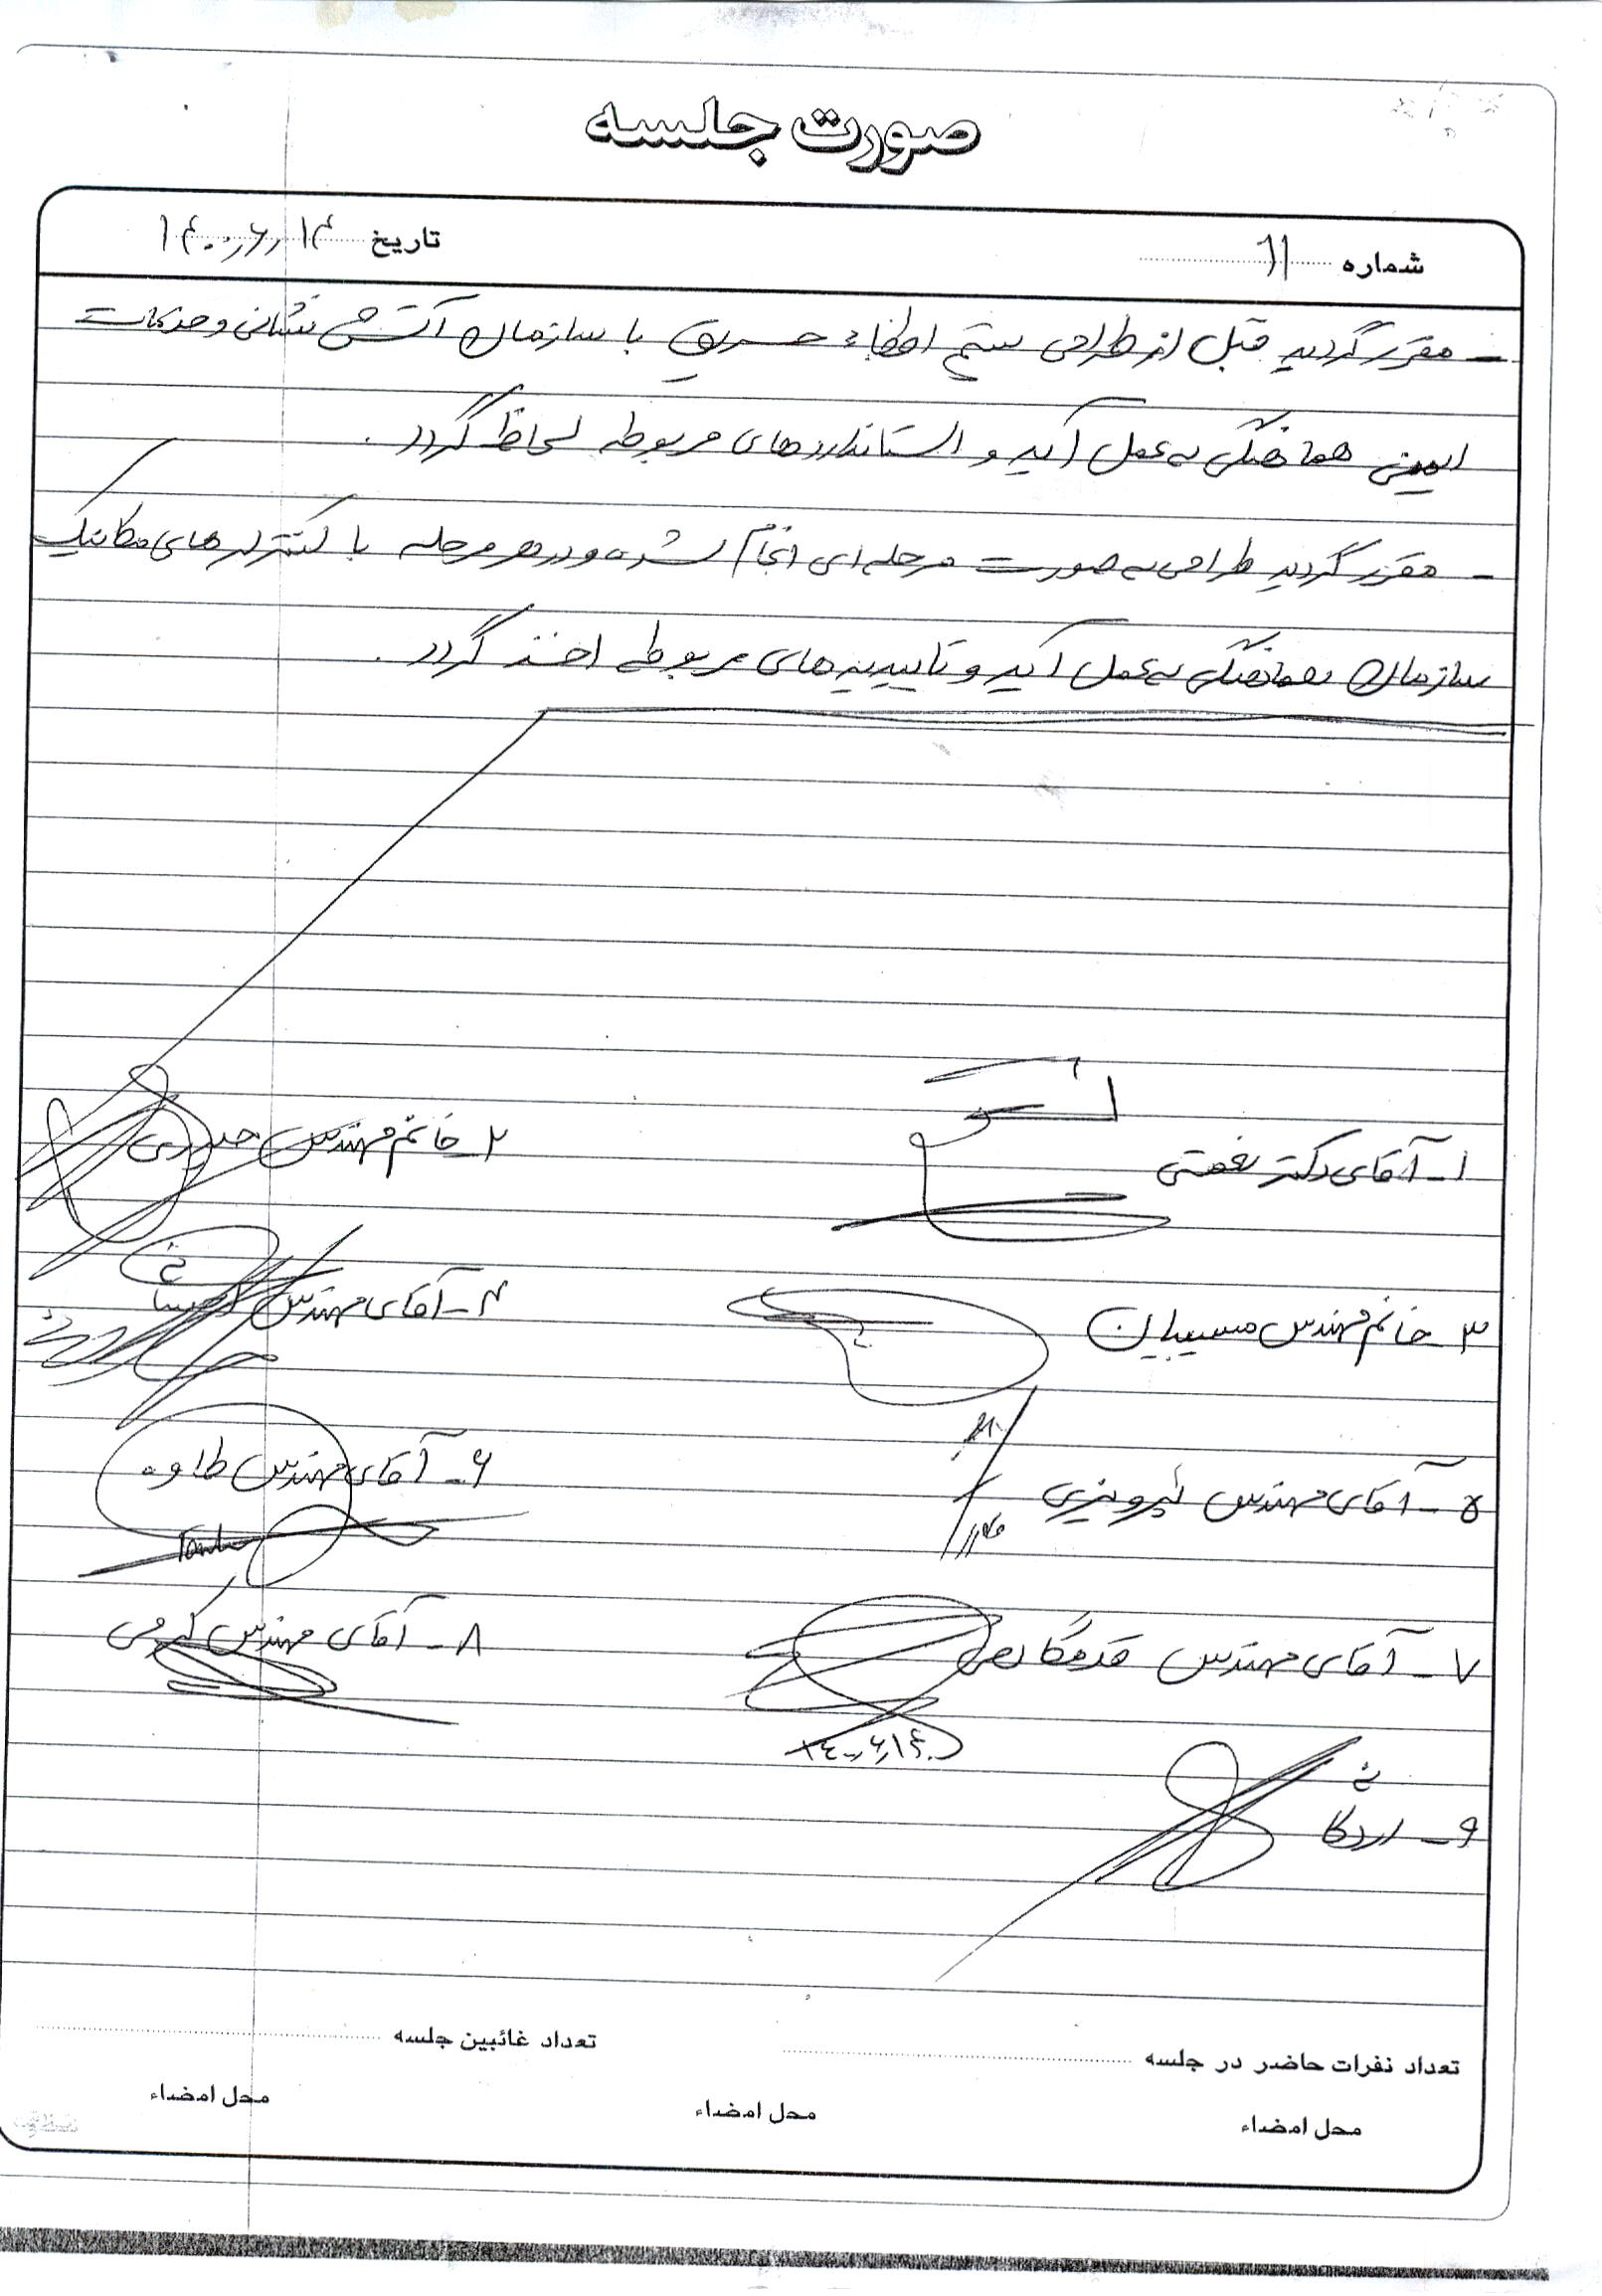 صورت جلسه
شماره 11
تاریخ ۱۴۰۰٫۶٫۱۴
- مقرر گردید قبل از طراحی ستم اطفاء حریق با سازمان آتش نشانی و خدمات
ایمنی هماهنگی به عمل آید و استانداردهای مربوطه لحاظ گردد.
- مقرر گردید طراحی به صورت مرحله ای انجام شده و در هر مرحله با کنترلرهای مکانیک
سازمان هماهنگی به عمل آید و تاییدیه های مربوطه اخذ گردد.
۱- آقای دکتر نعمتی
۲- خانم مهندس حیدری
۳- خانم مهندس مسیبیان
۴- آقای مهندس
۵- آقای مهندس پرویزی
۶- آقای مهندس طاوه
۷- آقای مهندس قدمگاهی
۸- آقای مهندس کرمی
۱۴۰۰٫۶٫۱۴
۹- اردکانی
تعداد نفرات حاضر در جلسه
تعداد غائبین جلسه
محل امضاء
محل امضاء
محل امضاء